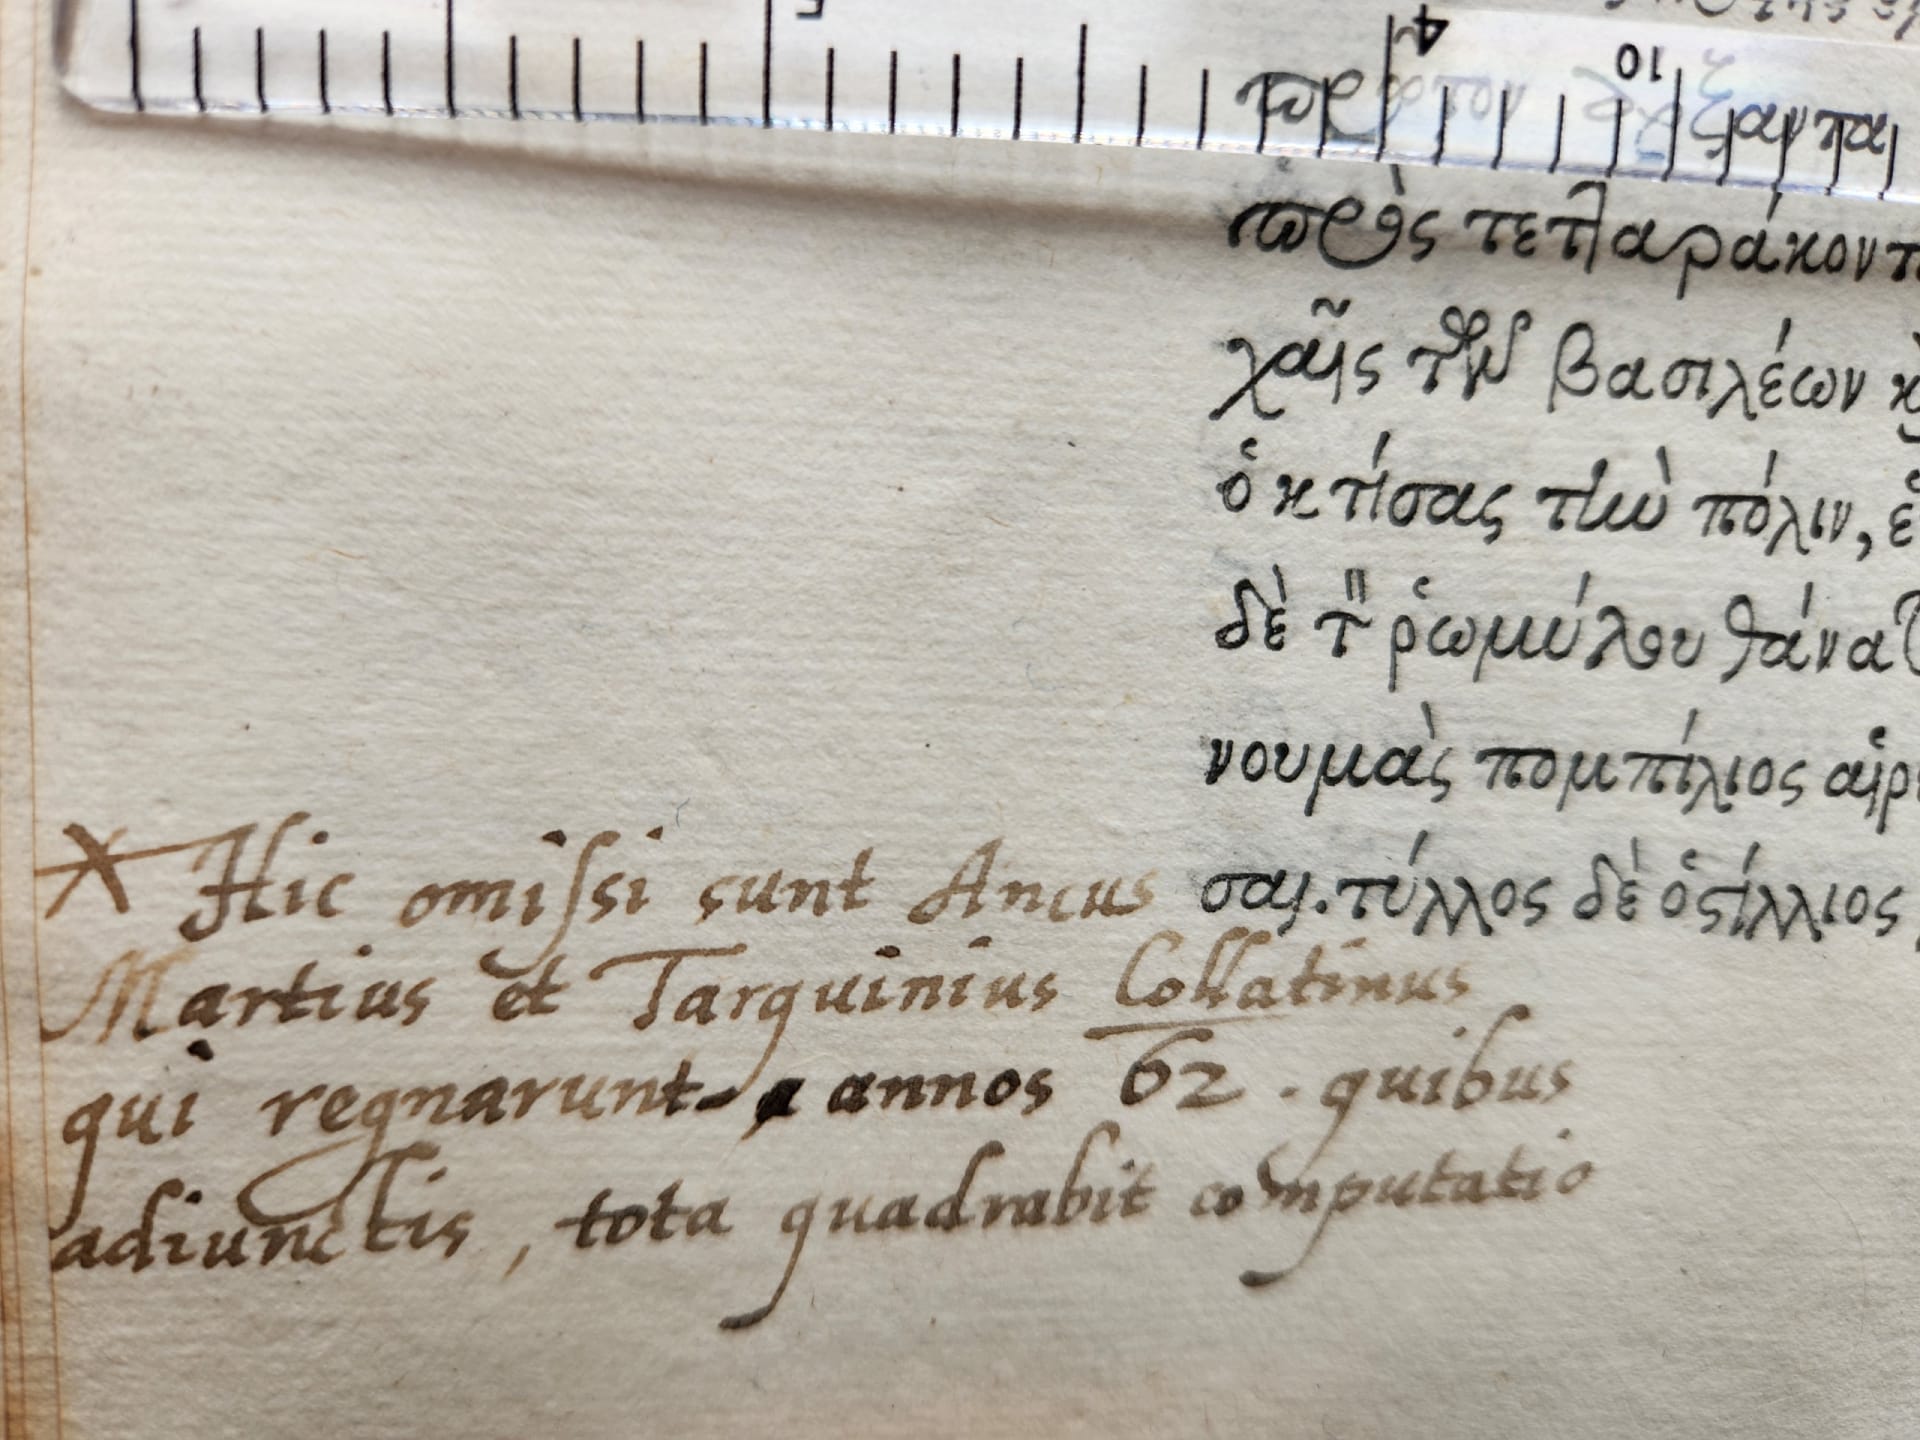 5 4 10
πρ ξαντα
πρὸς τετλαράκοντ
χαῖς τῶν βασιλέων κ
ὁ κτίσας τὴν πόλιν, ἑ
δὲ τ ῥωμύλου θάνατ
νουμὰς πομπίλιος αἱρ
σαι. τύλλος δὲ ὁστίλλιος,
* Hic omiſsi sunt Ancus
Martius et Tarquinius Collatinus
qui regnarunt annos 62. quibus
adiunctis, tota quadrabit computatio